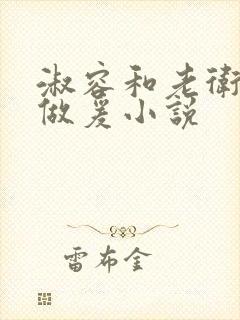 淑容和老衛
做爰小說
雷布金